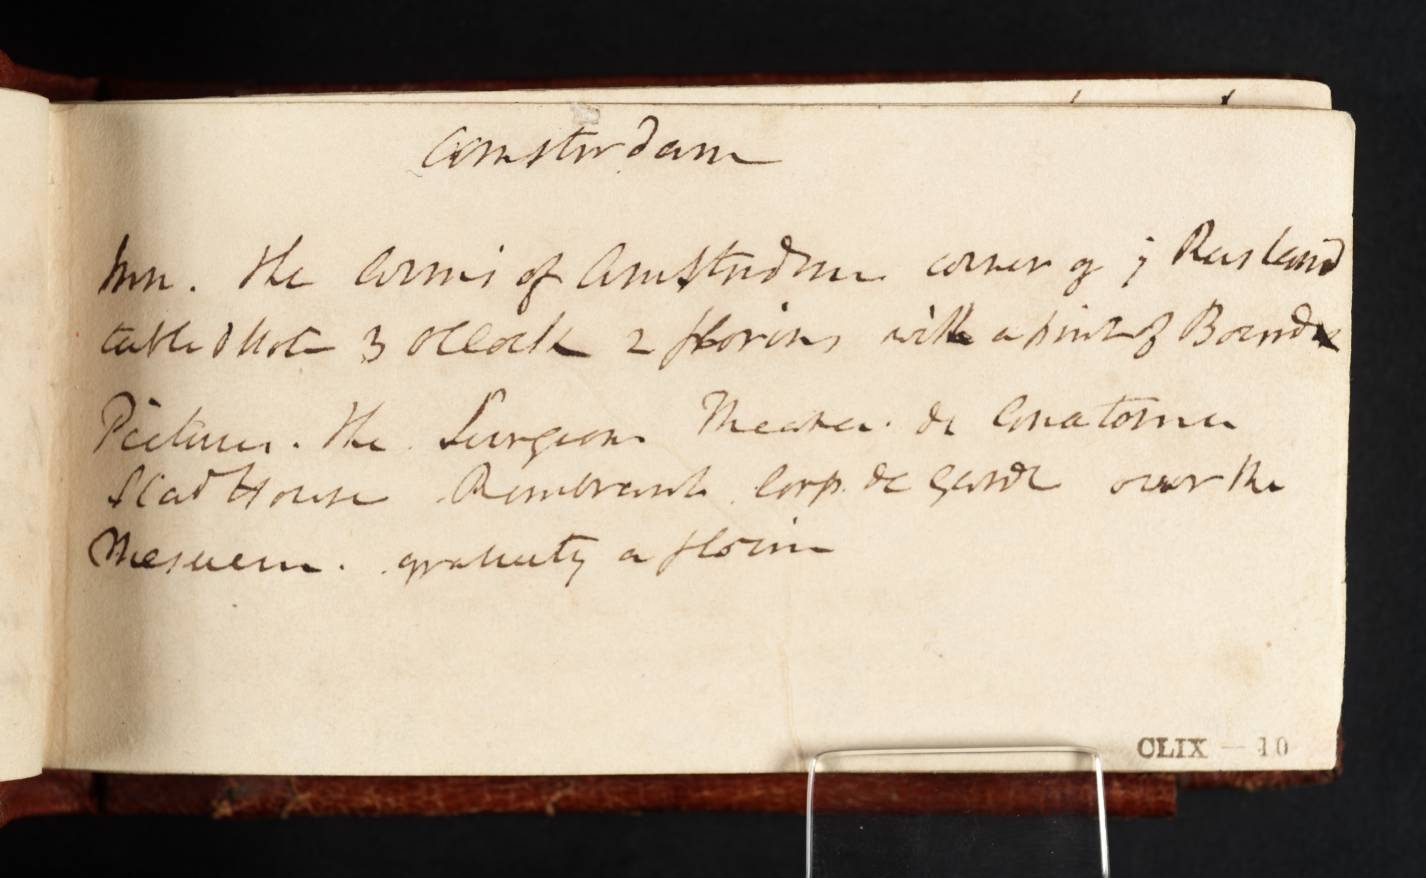 Amsterdam
Inn. the Arms of Amsterdam corner of y Rusland
table dHote 3 oClock 2 florins with a pint of Bourdx
Pictures. the Surgeons Theatre. de Anatomie
Stad House Rembrandt Corp de Garde over the
Meseum. gratuity a florin
CLIX - 10